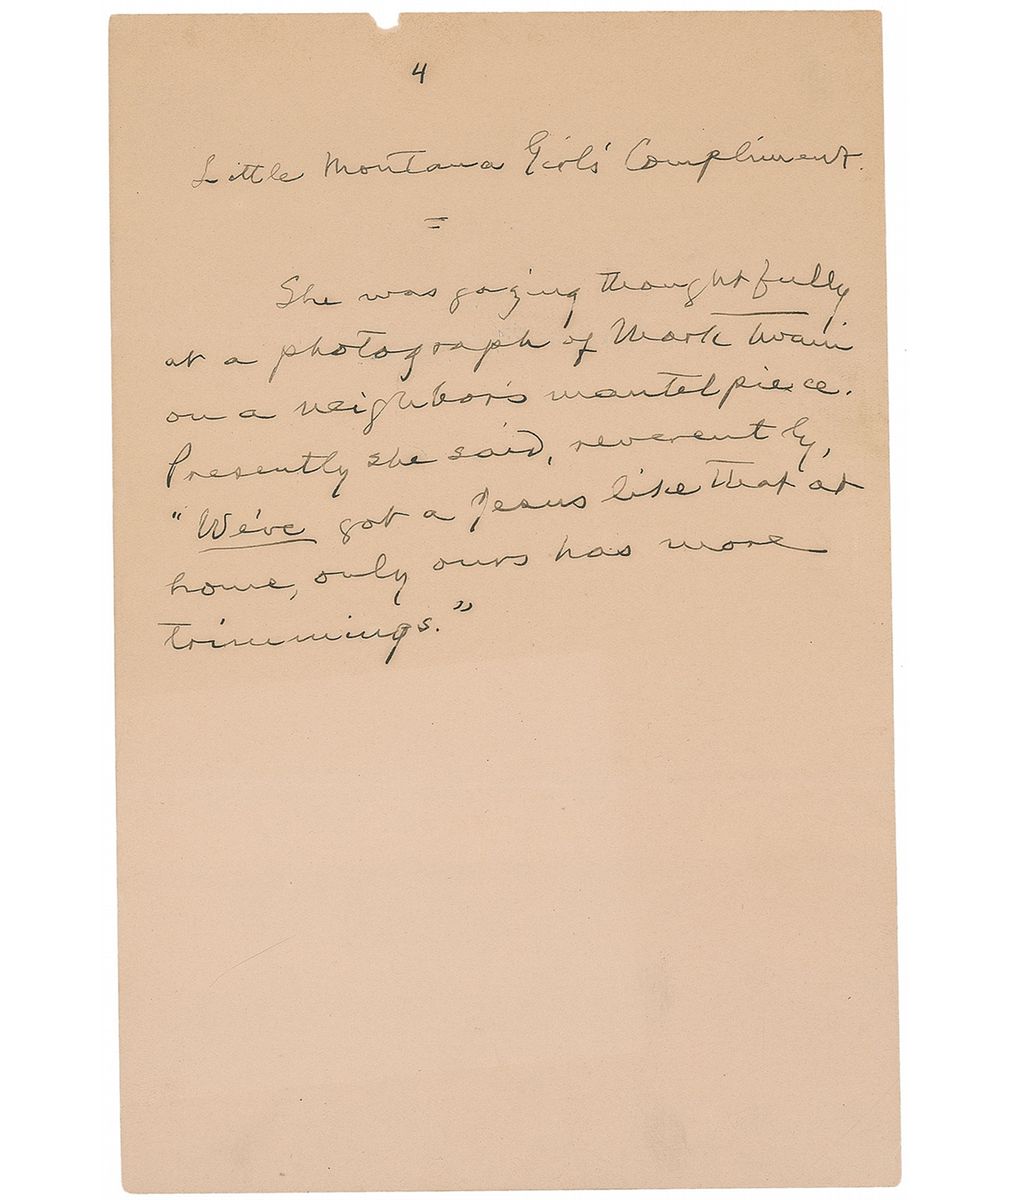 4
Little Montana Girl's Compliment.
=
She was gazing thoughtfully
at a photograph of Mark Twain
on a neighbor's mantelpiece.
Presently she said, reverently,
"We've got a Jesus like that at
home, only ours has more
trimmings."